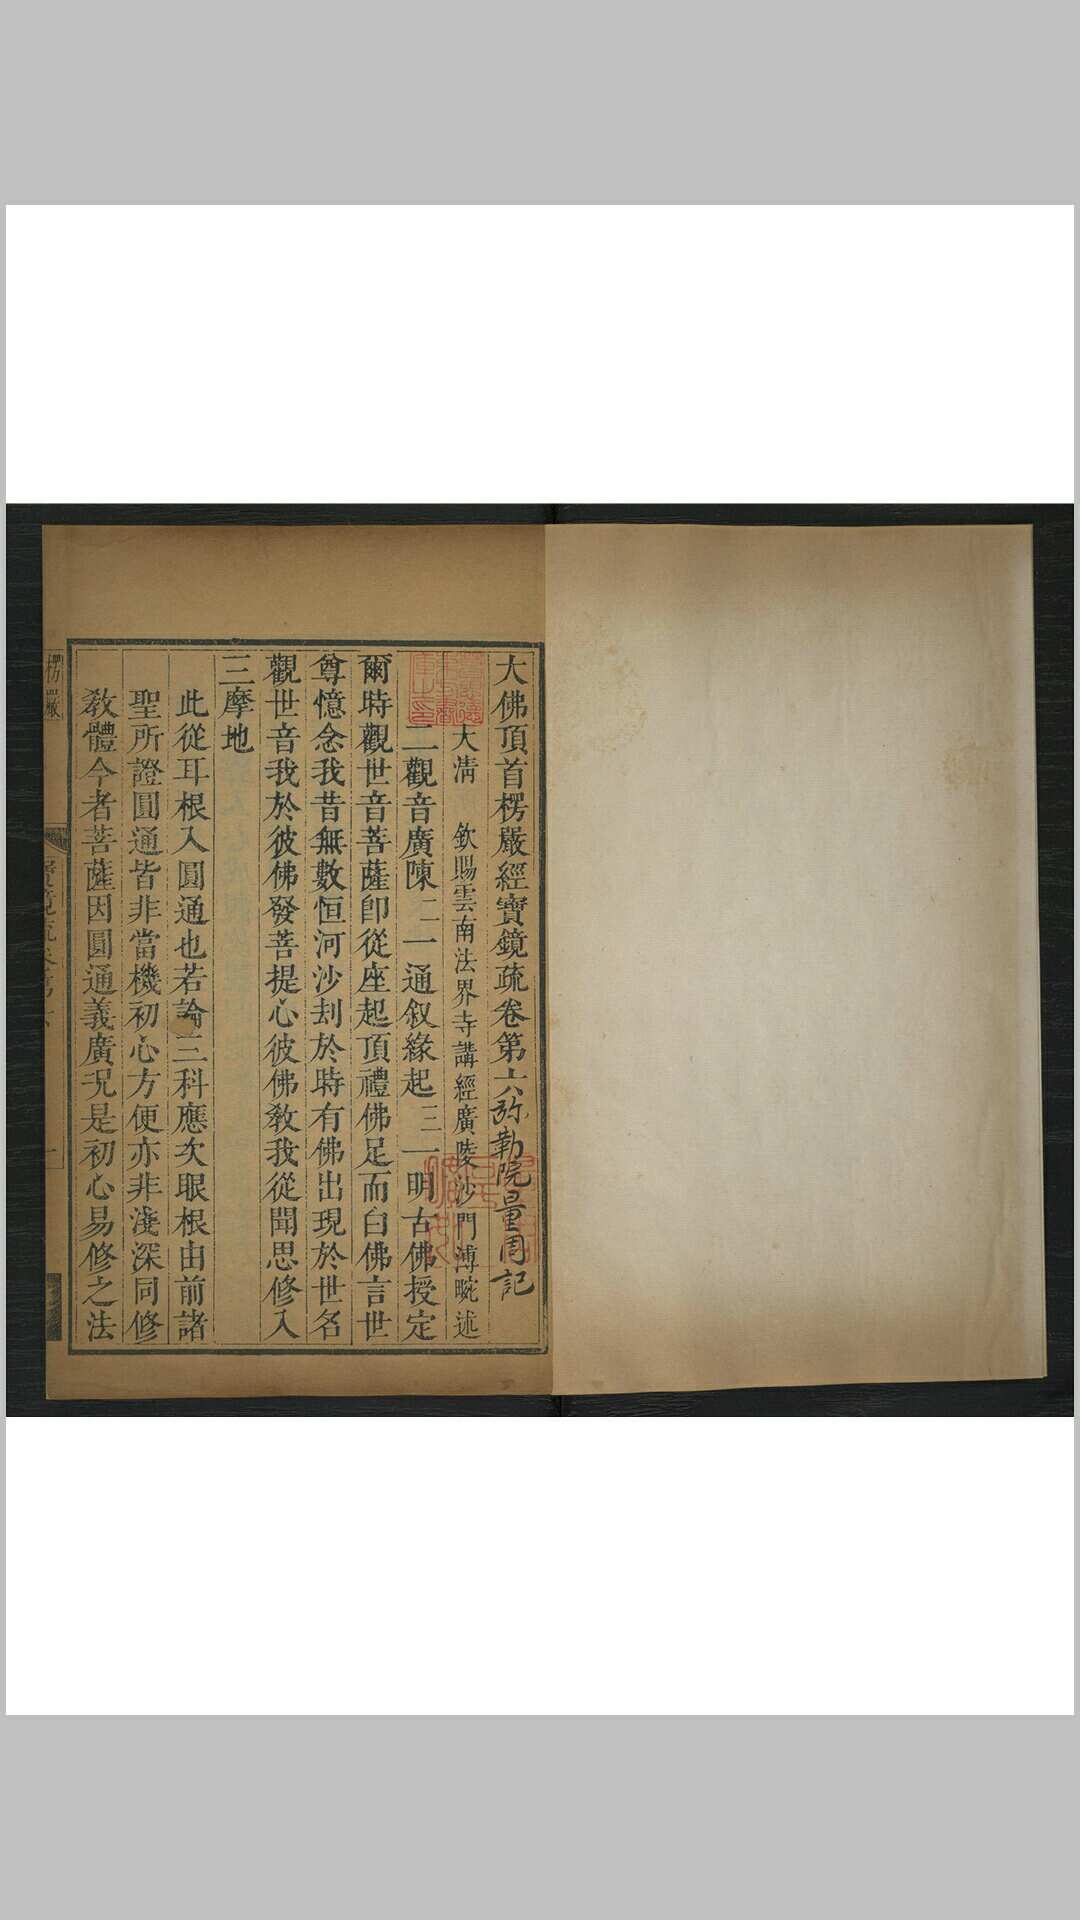 大佛頂首楞嚴經寶鏡疏卷第六弥勒院量周記
大清　欽賜雲南法界寺講經廣陵沙門溥畹述
二觀音廣陳二一通叙緣起三一明古佛授定
爾時觀世音菩薩卽從座起頂禮佛足而白佛言世
尊憶念我昔無數恒河沙刦於時有佛出現於世名
觀世音我於彼佛發菩提心彼佛敎我從聞思修入
三摩地
此從耳根入圓通也若論三科應次眼根由前諸
聖所證圓通皆非當機初心方便亦非淺深同修
敎體今者菩薩因圓通義廣況是初心易修之法
楞嚴
寶鏡疏卷第六
一